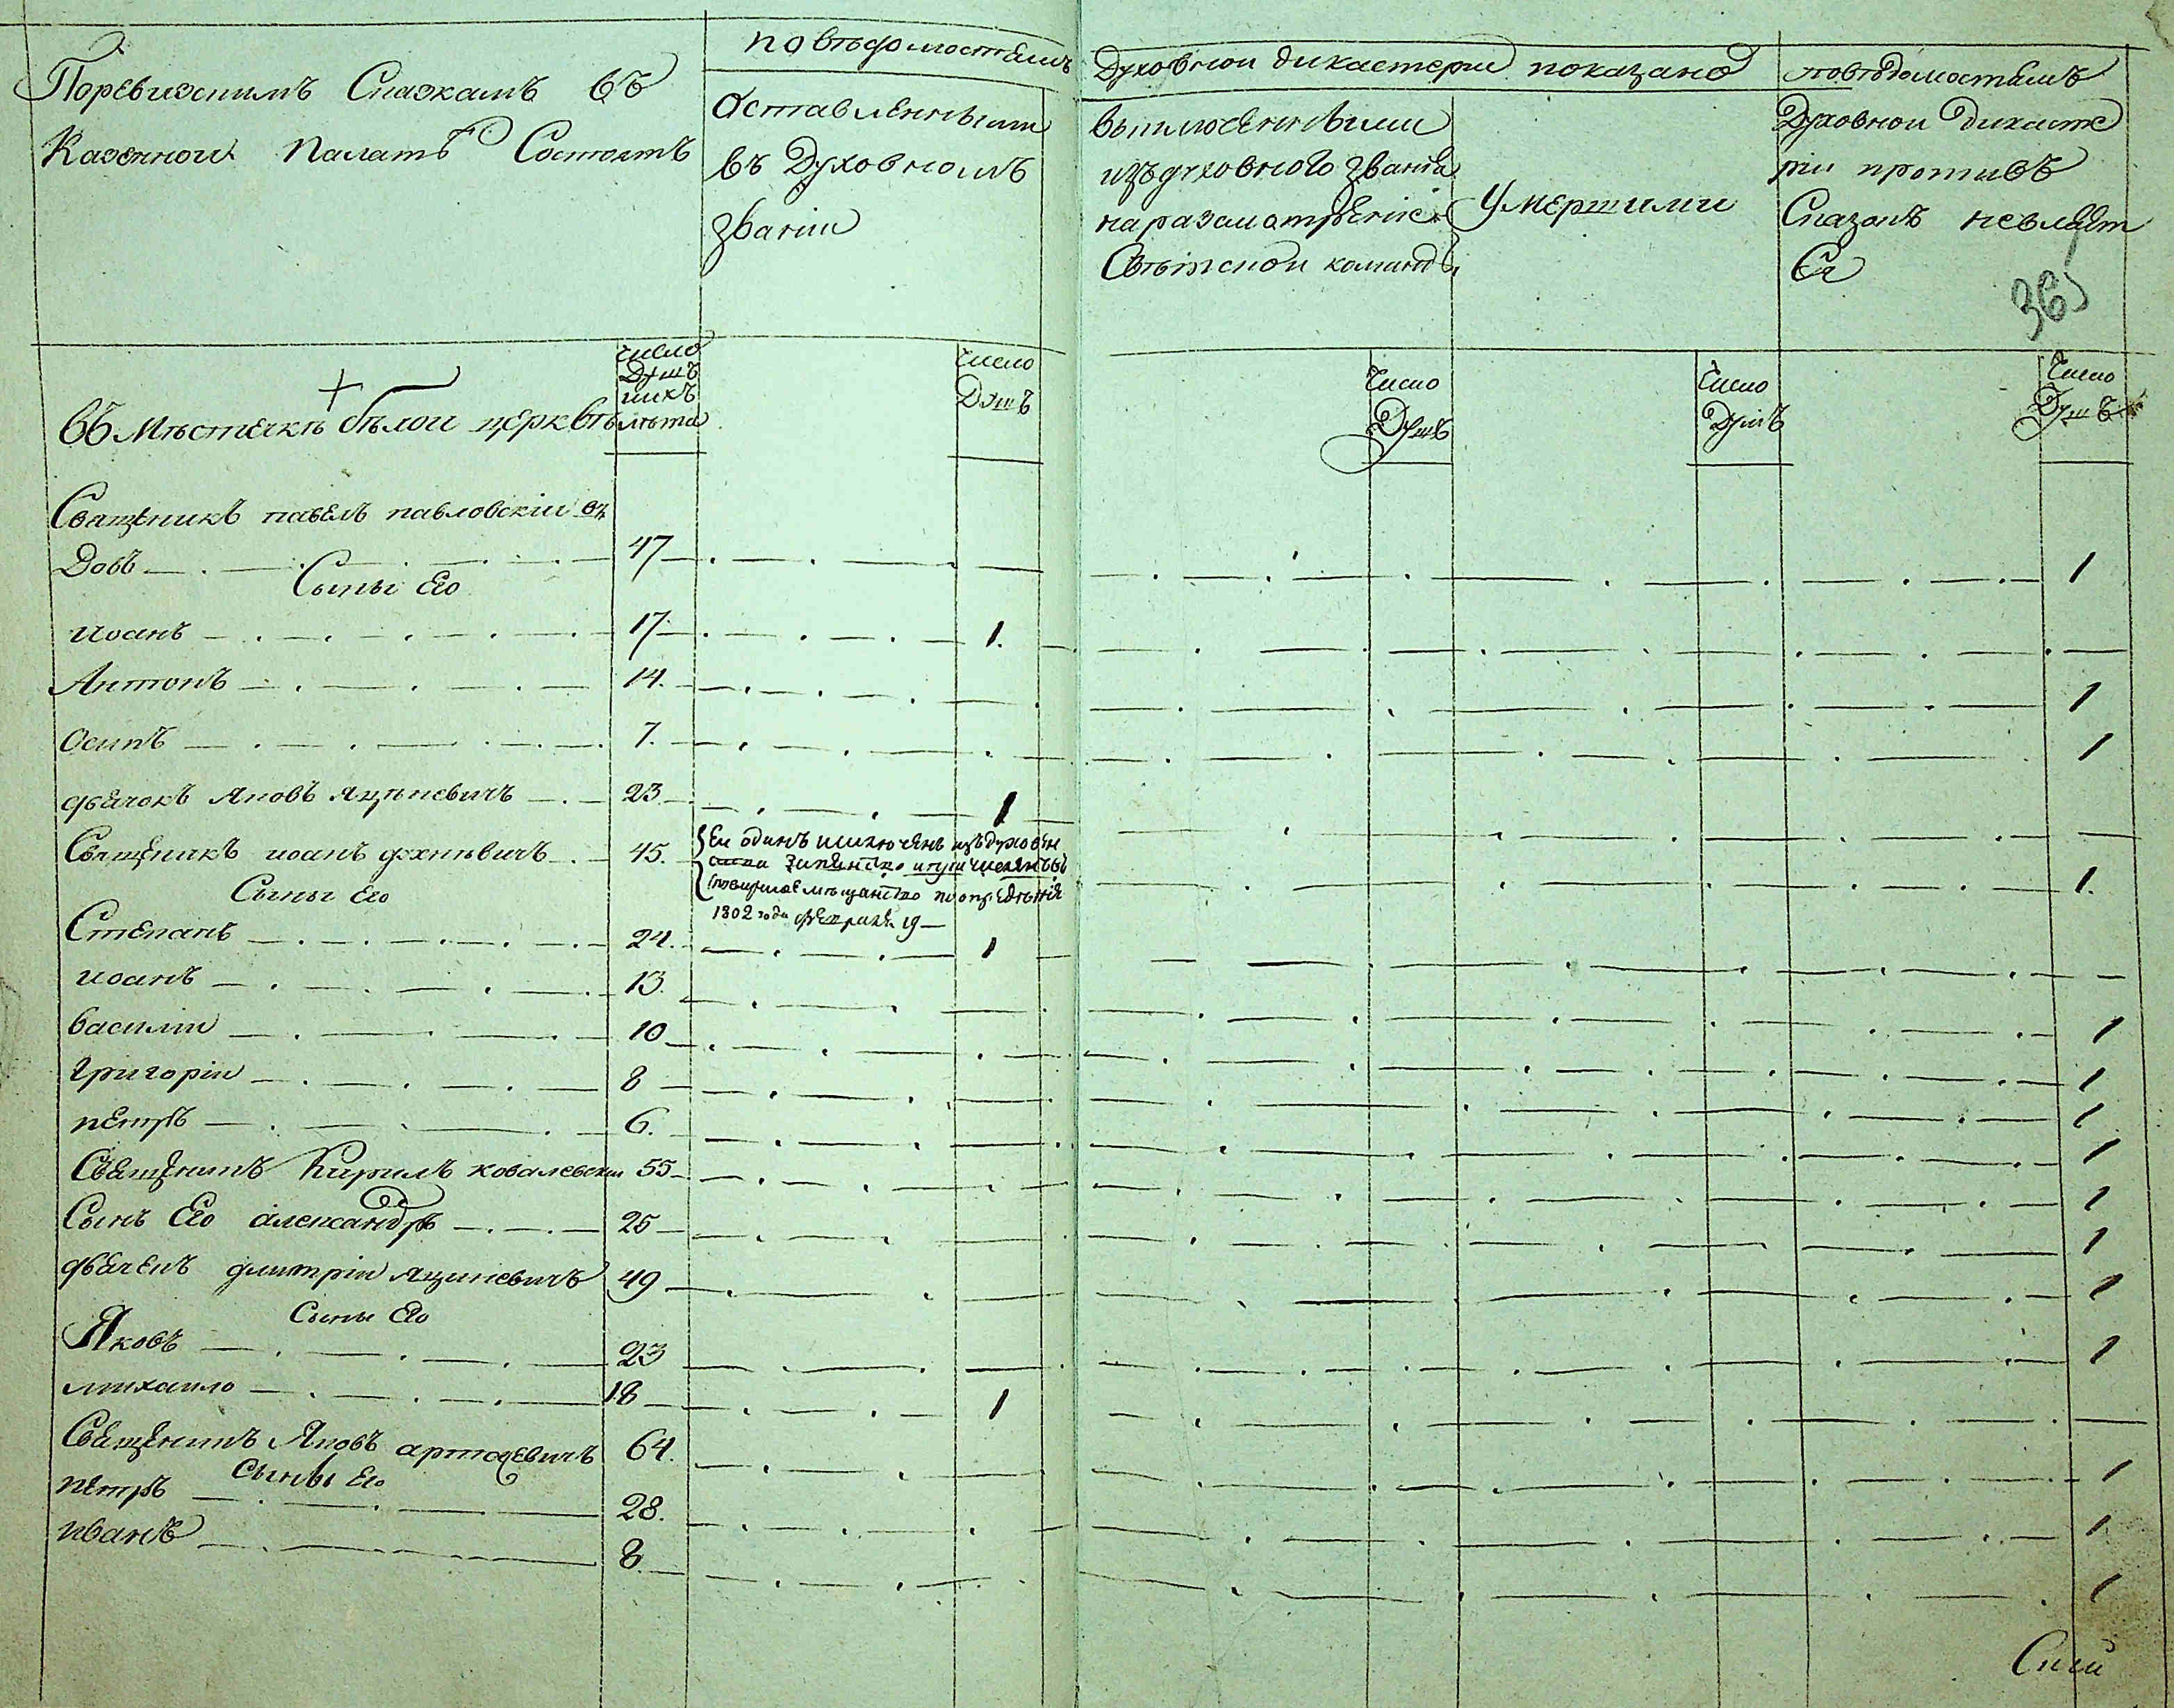 Поревизскимъ Сказкамъ въ
Казенной Палатѣ Состоитъ
по вѣдомостямъ
Духовной дикастерии показано
Оставленными
въ Духовномъ
званіи
выключенными
изъ духовного званія
на разсмотреніе
Свѣтской команды
Умершими
по вѣдомостямъ
Духовной Дикасте
ріи противъ
Сказокъ неявляет
Ся
36
число
Душъ
ихъ
лѣта
число
Душъ
Число
Душъ
Число
Душъ
Число
Душъ
въ Мѣстечкѣ бѣлой церквѣ
Священикъ павелъ павловскій в
Довъ 47 1
Сыны Его
иоанъ 17 1
Антонъ 14 1
Осипъ 7 1
дьячокъ Яковъ яцыневичъ 23 1
Священикъ иоанъ 45 1
Ея одинъ изключенъ изъ духовен
1802 года февраля 19
Сыны Его
Степанъ 24 1
иоанъ 13 1
василии 10 1
григоріи 8 1
петръ 6 1
Священикъ Кирилъ ковалевскии 55 1
Сынъ Его александръ 25 1
дьячекъ димитріи яциневичъ 49 1
Сыны Его
Яковъ 23 1
михаило 18 1
Священикъ Яковъ 64 1
Сыны Его
петръ 28 1
иванъ 8 1